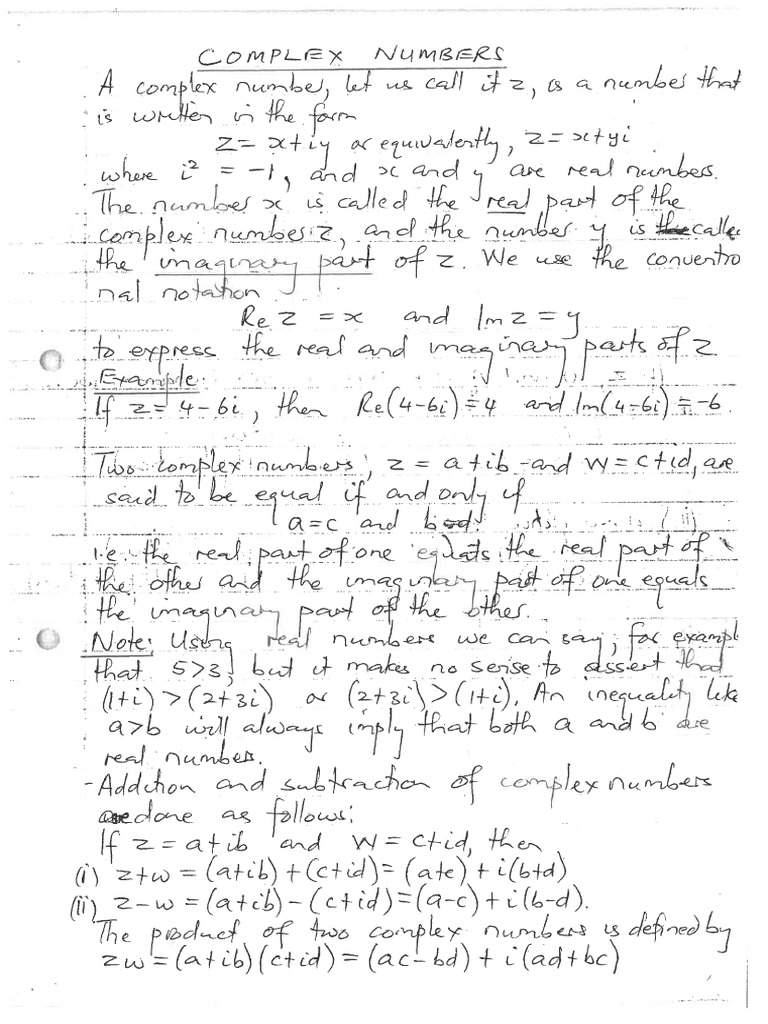 COMPLEX NUMBERS
A complex number, let us call it z, is a number that
is written in the form
z = x+iy or equivalently, z = x+yi
where i² = -1, and x and y are real numbers.
The number x is called the real part of the
complex number z, and the number y is the calle
the imaginary part of z. We use the conventio
nal notation
Re z = x and Im z = y
to express the real and imaginary parts of z
Example:
If z = 4-6i, then Re(4-6i) = 4 and Im(4-6i) = -6.
Two complex numbers, z = a+ib and w = c+id, are
said to be equal if and only if
a=c and b=d.
i.e. the real part of one equals the real part of
the other and the imaginary part of one equals
the imaginary part of the other.
Note: Using real numbers we can say, for exampl
that 5>3, but it makes no sense to assert that
(1+i) > (2+3i) or (2+3i) > (1+i). An inequality like
a>b will always imply that both a and b are
real number.
- Addition and subtraction of complex numbers
are done as follows:
If z = a+ib and w = c+id, then
(i) z+w = (a+ib) + (c+id) = (a+c) + i(b+d)
(ii) z-w = (a+ib) - (c+id) = (a-c) + i(b-d).
The product of two complex numbers is defined by
zw = (a+ib)(c+id) = (ac-bd) + i(ad+bc)